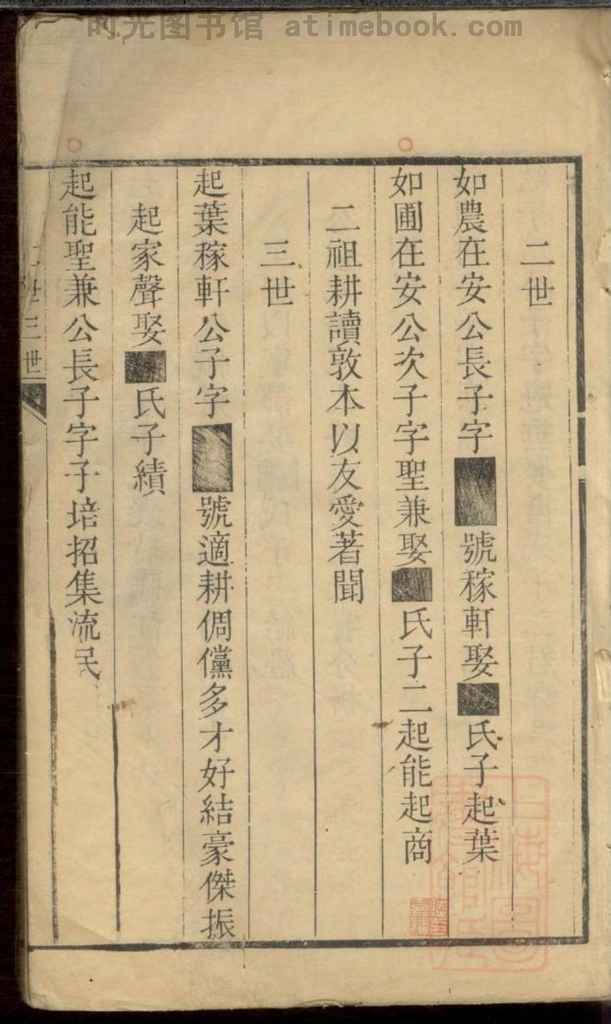 时光图书馆 atimebook.com
二世
如農在安公長子字號稼軒娶氏子起葉
如圃在安公次子字聖兼娶氏子二起能起商
二祖耕讀敦本以友愛著聞
三世
起葉稼軒公子字號適耕倜儻多才好結豪傑振
起家聲娶氏子績
起能聖兼公長子字子培招集流民
二世三世